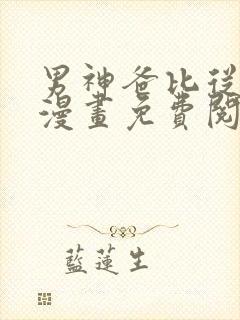 男神爸比從
漫畫免費閱
藍蓮生